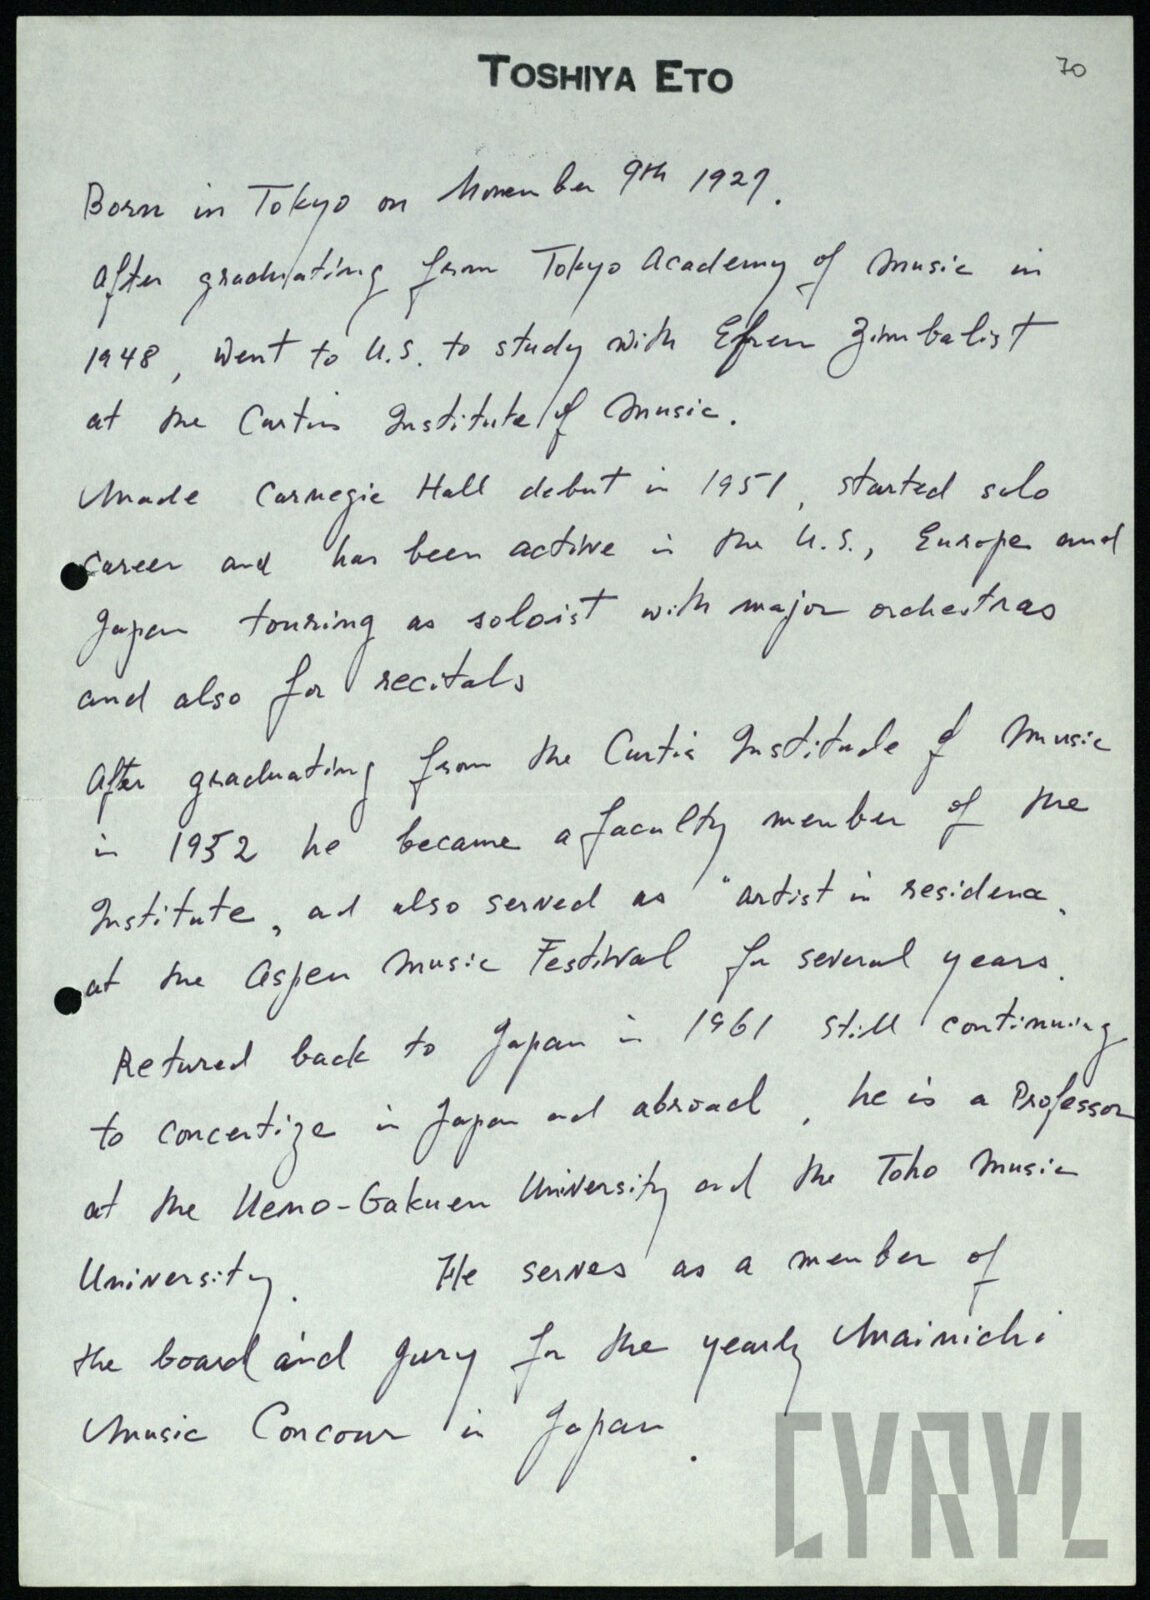 TOSHIYA ETO
70
Born in Tokyo on November 9th 1927.
After graduating from Tokyo Academy of Music in
1948, went to U.S. to study with Efrem Zimbalist
at the Curtis Institute of Music.
Made Carnegie Hall debut in 1951, started solo
career and has been active in the U.S., Europe and
Japan touring as soloist with major orchestras
and also for recitals
After graduating from the Curtis Institude of Music
in 1952 he became a faculty member of the
Institute, and also served as "artist in residence,
at the Aspen Music Festival for several years.
Retured back to Japan in 1961 still continuing
to concertize in Japan and abroad, he is a Professor
at the Ueno-Gakuen University and the Toho Music
University. He serves as a member of
the board and Jury for the yearly Mainichi
Music Concour in Japan.
CYRYL